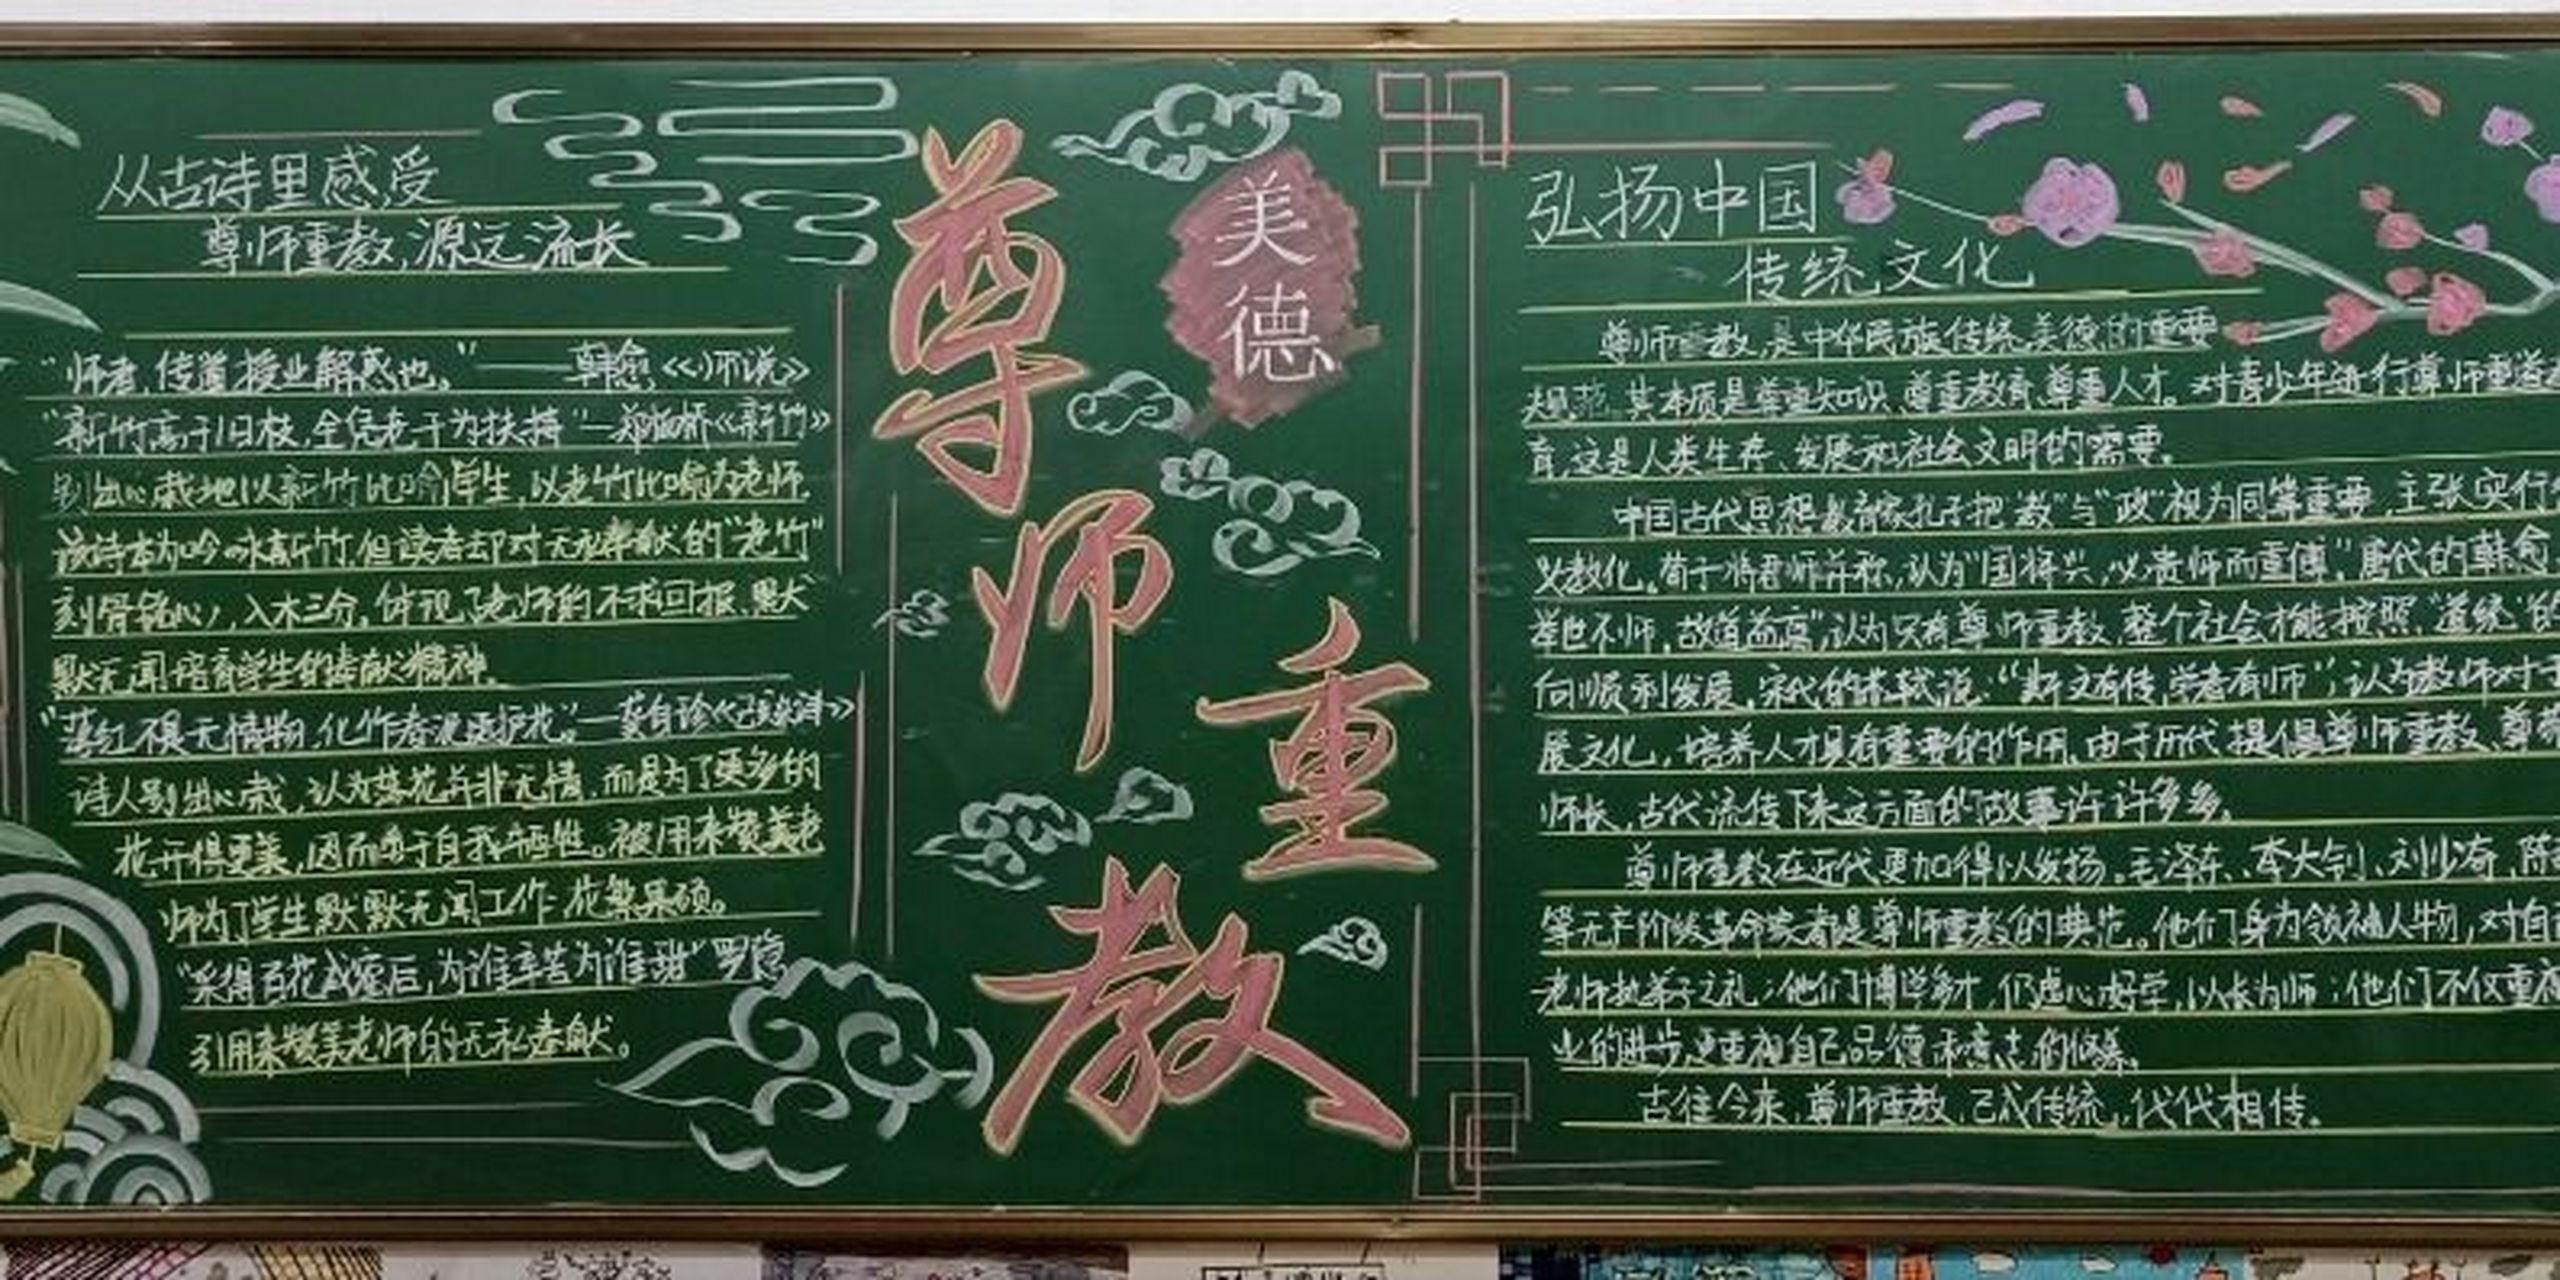 从古诗里感受
尊师重教,源远流长
“师者,传道授业解惑也。”——韩愈《师说》
“新竹高于旧枝,全凭老干为扶持”—郑板桥《新竹》
别出心裁地以新竹比喻学生,以老竹比喻为老师.
该诗本为吟咏新竹,但读者却对无私奉献的“老竹”
刻骨铭心,入木三分,体现了老师的不求回报,默
默无闻培育学生的奉献精神.
“落红不是无情物,化作春泥更护花”—龚自珍《己亥杂诗》
诗人别出心裁,认为落花并非无情,而是为了更多的
花开得更美,因而勇于自我牺牲。被用来赞美老
师为了学生默默无闻工作,花繁果硕。
“采得百花成蜜后,为谁辛苦为谁甜”罗隐
引用来赞美老师的无私奉献。
尊师重教
美德
弘扬中国
传统文化
尊师重教,是中华民族传统美德的重要
规范,其本质是尊重知识、尊重教育、尊重人才。对青少年进行尊师重道
育,这是人类生存、发展和社会文明的需要。
中国古代思想教育家孔子把“教”与“政”视为同等重要,主张实行
义教化。荀子将君师并称,认为“国将兴,必贵师而重傅”唐代的韩愈
举世不师,故道益离”,认为只有尊师重教,整个社会才能按照“道统”的
向顺利发展,宋代的苏轼说:“斯文有传,学者有师”,认为教师对于
展文化,培养人才具有重要的作用,由于历代提倡尊师重教、尊
师长,古代流传下来这方面的故事许许多多。
尊师重教在近代更加得以发扬。毛泽东、李大钊、刘少奇,陈
等无产阶级革命家都是尊师重教的典范。他们身为领袖人物,对自
老师执弟子之礼;他们博学多才,仍虚心好学,以长为师;他们不仅重视
业的进步,更重视自己品德和意志的修养。
古往今来,尊师重教,已成传统,代代相传。